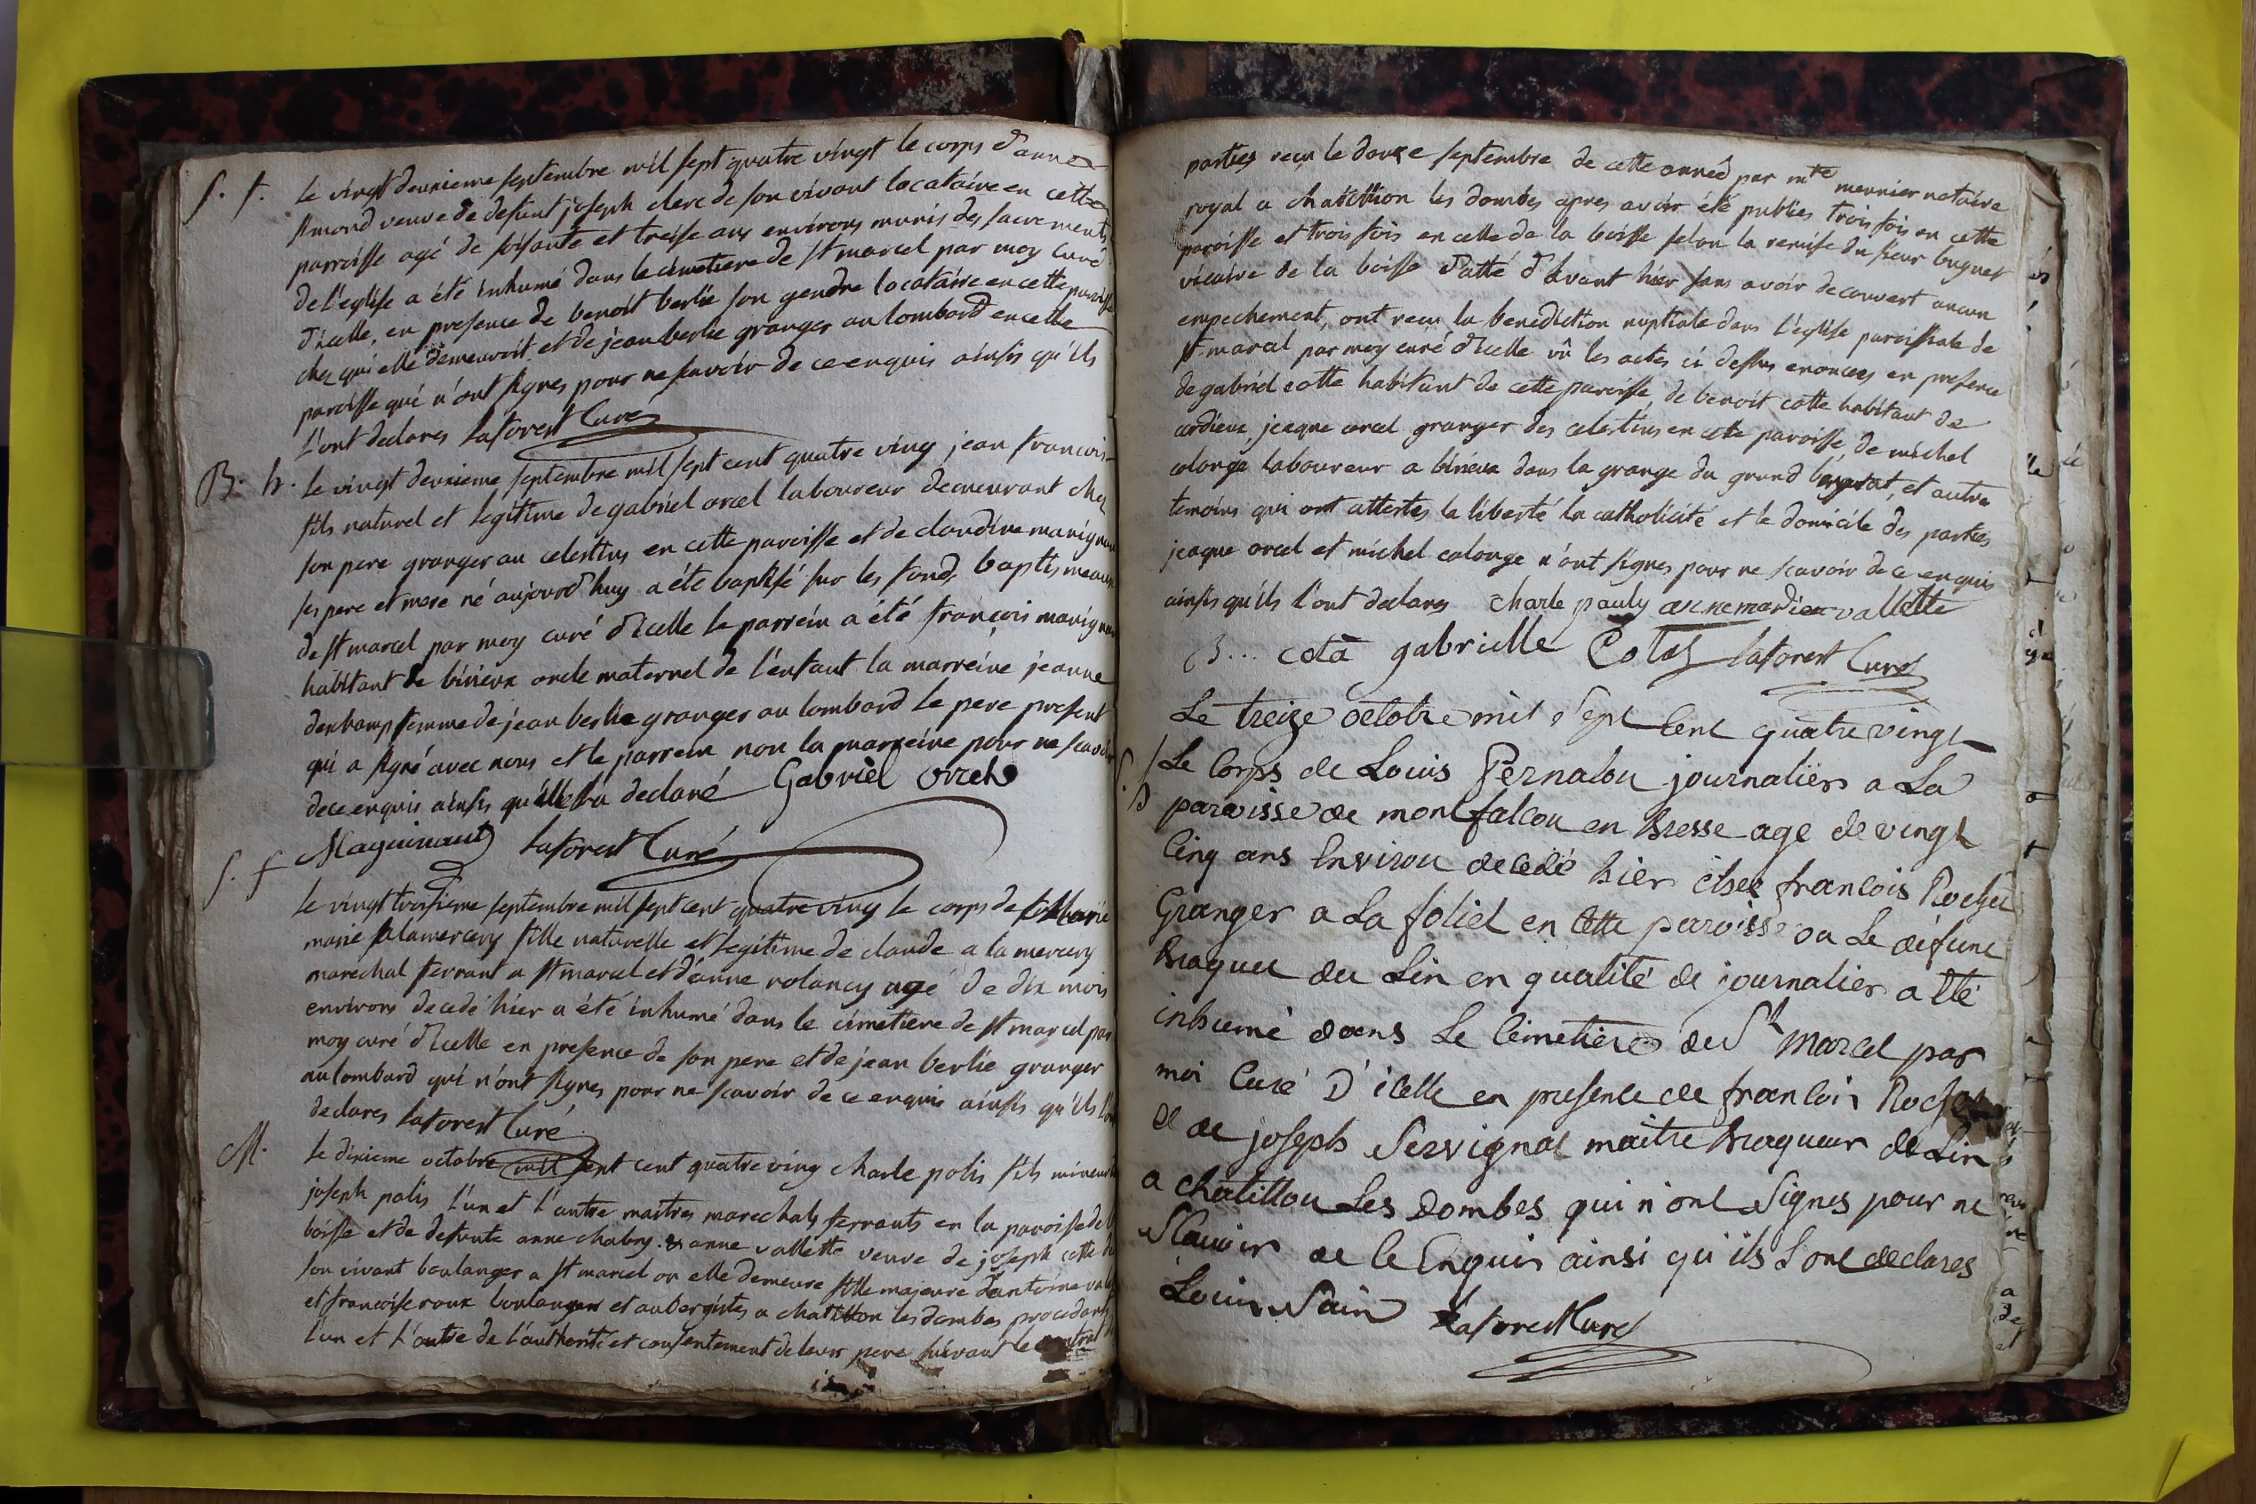 S. f. Le vingt deuxieme septembre mil sept quatre vingt le corps d'anne
simond veuve de defunt joseph clerc de son vivant locataire en cette
parroisse agé de soisante et treise ans environs munis des sacrements
de l'eglise a été inhumé dans le cimetiere de st marcel par moy curé
d'icelle, en presence de benoit berlie son gendre locataire en cette paroisse
chez qui elle demeuroit, et de jean berlie granger au lombard en cette
paroisse qui n'ont signes pour ne savoir de ce enquis ainsis qu'ils
l'ont declares Laforest Curé
B. h. Le vingt deuxieme septembre mil sept cent quatre ving jean francois
fils naturel et legitime de gabriel orcel laboureur demeurant chez
son pere granger au celestins en cette paroisse et de claudine
ses pere et mere né aujourd'huy a été baptisé sur les fonds baptismeaux
de st marcel par moy curé d'icelle le parrein a été francois
habitant de birieux oncle maternel de l'enfant la marreine jeanne
deschamp femme de jean berlie granger au lombard le pere present
qui a signé avec nous et le parrein non la marreine pour ne scavoir
de ce enquis ainsis qu'elle l'a declaré Gabriel orcel
Laforest Curé
S. f Le vingt troisieme septembre mil sept cent quatre ving le corps de Marie
marie alamercery fille naturelle et legitime de claude a la mercery
marechal ferrant a st marcel et d'anne rolancy agé de dix mois
environs decedé hier a été inhumé dans le cimetiere de st marcel par
moy curé d'icelle en presence de son pere et de jean berlie granger
au lombard qui n'ont signes pour ne scavoir de ce enquis ainsis qu'ils l'ont
declares Laforest Curé
M. Le dixieme octobre mil sept cent quatre ving charle polis fils mineur de
joseph polis l'un et l'autre maitres marechals ferrants en la paroisse de la
boisse et de defunte anne chabry & anne vallette veuve de joseph cotte de
son vivant boulanger a st marcel ou elle demeure fille majeure d'antoine
et francoise roux boulangers et aubergistes a chatillon les dombes procedants
l'un et l'autre de l'authorité et consentement de leurs pere suivant le contrat
parties reçu le douze septembre de cette année par mte meunier notaire
royal a chatillion les dombes apres avoir été publies trois fois en cette
paroisse et trois fois en celle de la boisse selon la remise du sieur buguet
vicaire de la boisse datté d'avant hier sans avoir decouvert aucun
empechement, ont reçu la benediction nuptiale dans l'eglise paroissiale de
st marcel par moy curé d'icelle vû les actes ci dessus enonces en presence
de gabriel cotte habitant de cette paroisse, de benoit cotte habitant de
cordieux, jcaque orcel granger des celestins en cete paroisse, de michel
colonge laboureur a birieux dans la grange du grand et autre
temoins qui ont attestes la liberté la catholicité et le domicile des parties
jcaque orcel et michel colonge n'ont signes pour ne scavoir de ce enquis
ainsis qu'ils l'ont declares charle pauly anne mardien vallette
B... cota gabrielle Cotas Laforest Curé
Le treize octobre mil sept Cent quatre vingt
Le Corps de Louis Pernalou journalier a La
paroisse de monfalcon en Bresse age de vingt
Cinq ans Environ decedé hier chez francois Rochet
Granger a La foliet en Cette paroisse ou Le défunt
Braquet du Lin en qualité de journalier a Eté
inhumé dans Le Cimetiere de St Marcel par
moi Curé D'icelle en presence de francois Rochet
et de joseph Servignat maitre Braqueur de Lin
a chatillon Les Dombes qui n'ont Signes pour ne
Scavoir de Ce Enquis ainsi qu'ils L'ont declares
Louis Sain Laforest Curé